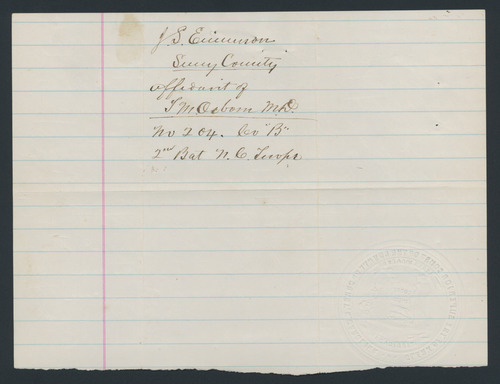 J. S. Emmerson
Surry County
affidavit of
T M Osborn M.D.
No 204. Co "B"
2nd Bat N. C. Troops